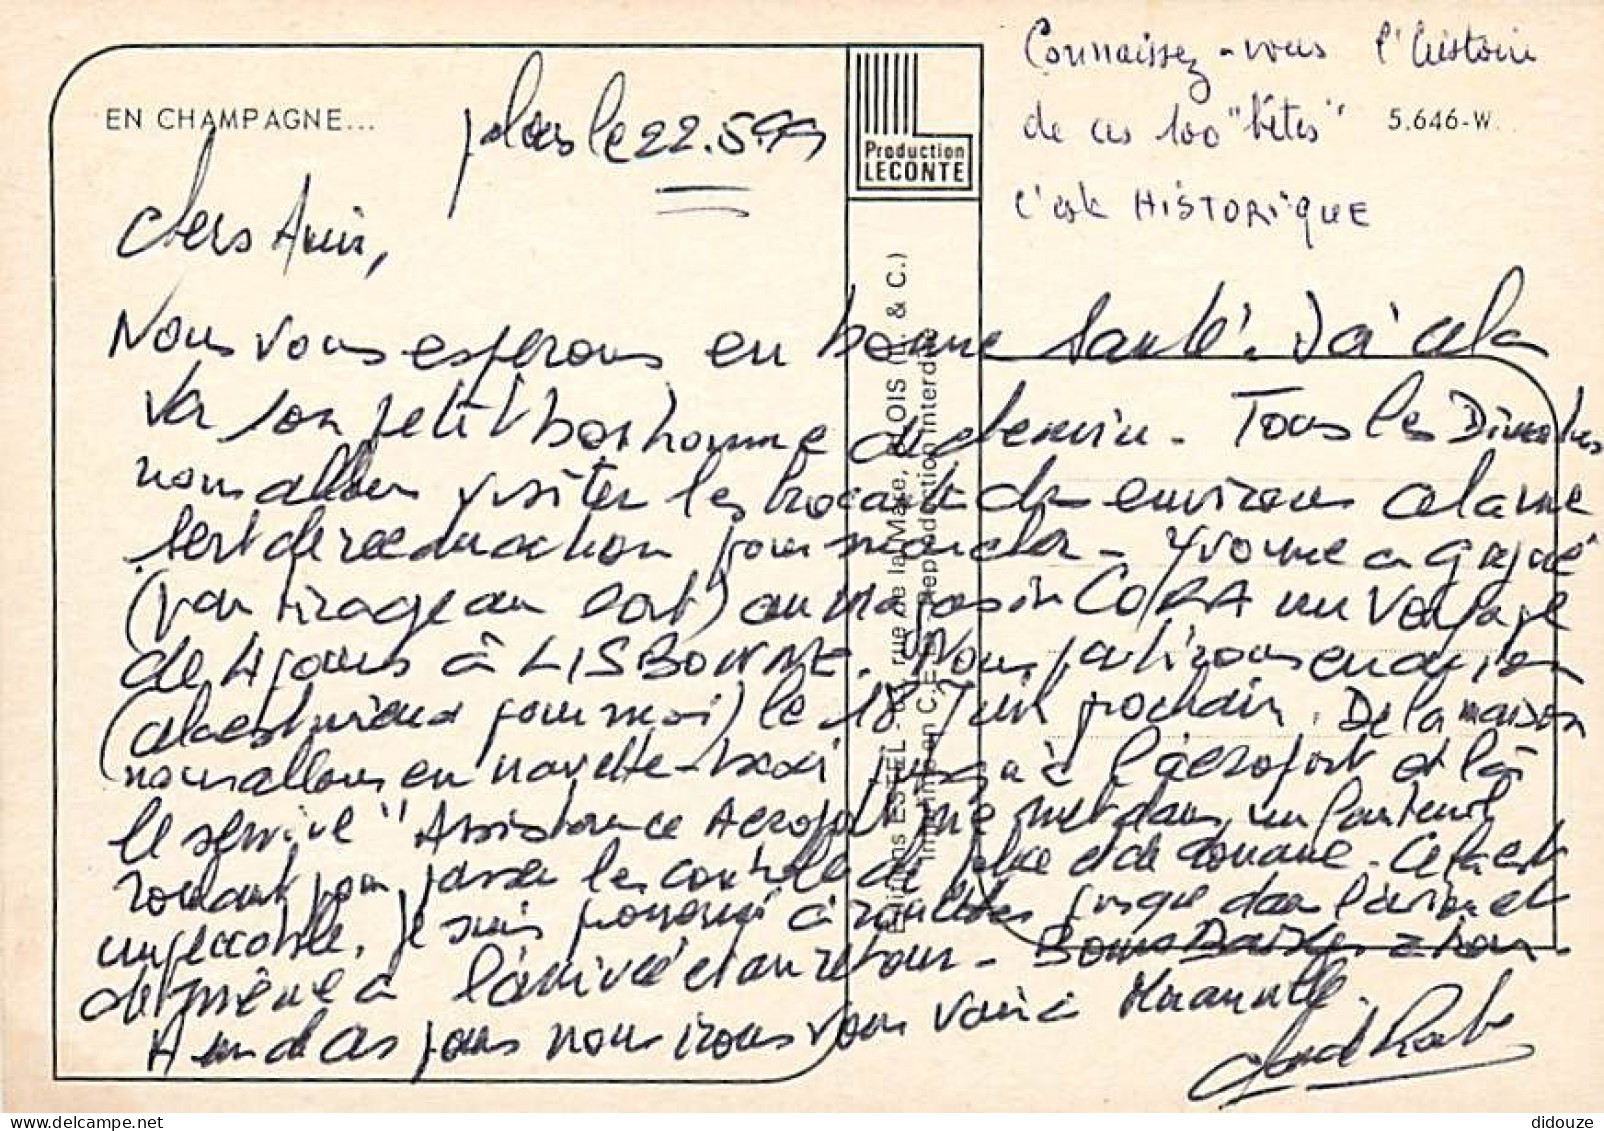 EN CHAMPAGNE...
le 22.5.99
Production
LECONTE
Connaissez-vous l'histoire
de ces 100 "bêtes"
5.646-W.
c'est HISTORIQUE
Chers Amis,
Nous vous espérons en bonne santé. Ici cela
va son petit bonhomme de chemin. Tous les Dimanches
nous allons visiter les brocantes des environs cela me
sert de rééducation pour marcher - Yvonne a gagné
(par tirage au sort) au magasin CORA un voyage
de 4 jours à LISBONNE. Nous partirons en avion
le 18 Juin prochain. De la maison
nous allons en navette-taxi jusqu'à l'aéroport et là
le service "Assistance Aéroport me met dans un fauteuil
roulant pour passer les contrôles de police et de douane. Cela est
impeccable. Je suis jusque dans l'avion et
de même à l'arrivée et au retour - Bons Baisers
A un de ces jours nous irons vous voir à
Editions ESTEL - rue de la Mare, BLOIS (L. & C.)
Imprimé en C.E.E. - Reproduction interdite
didouze